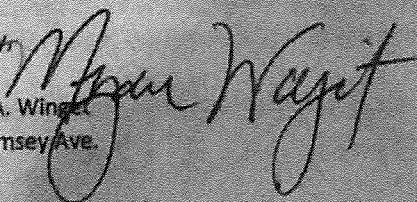 Megan Winget
A. Winget
msey Ave.